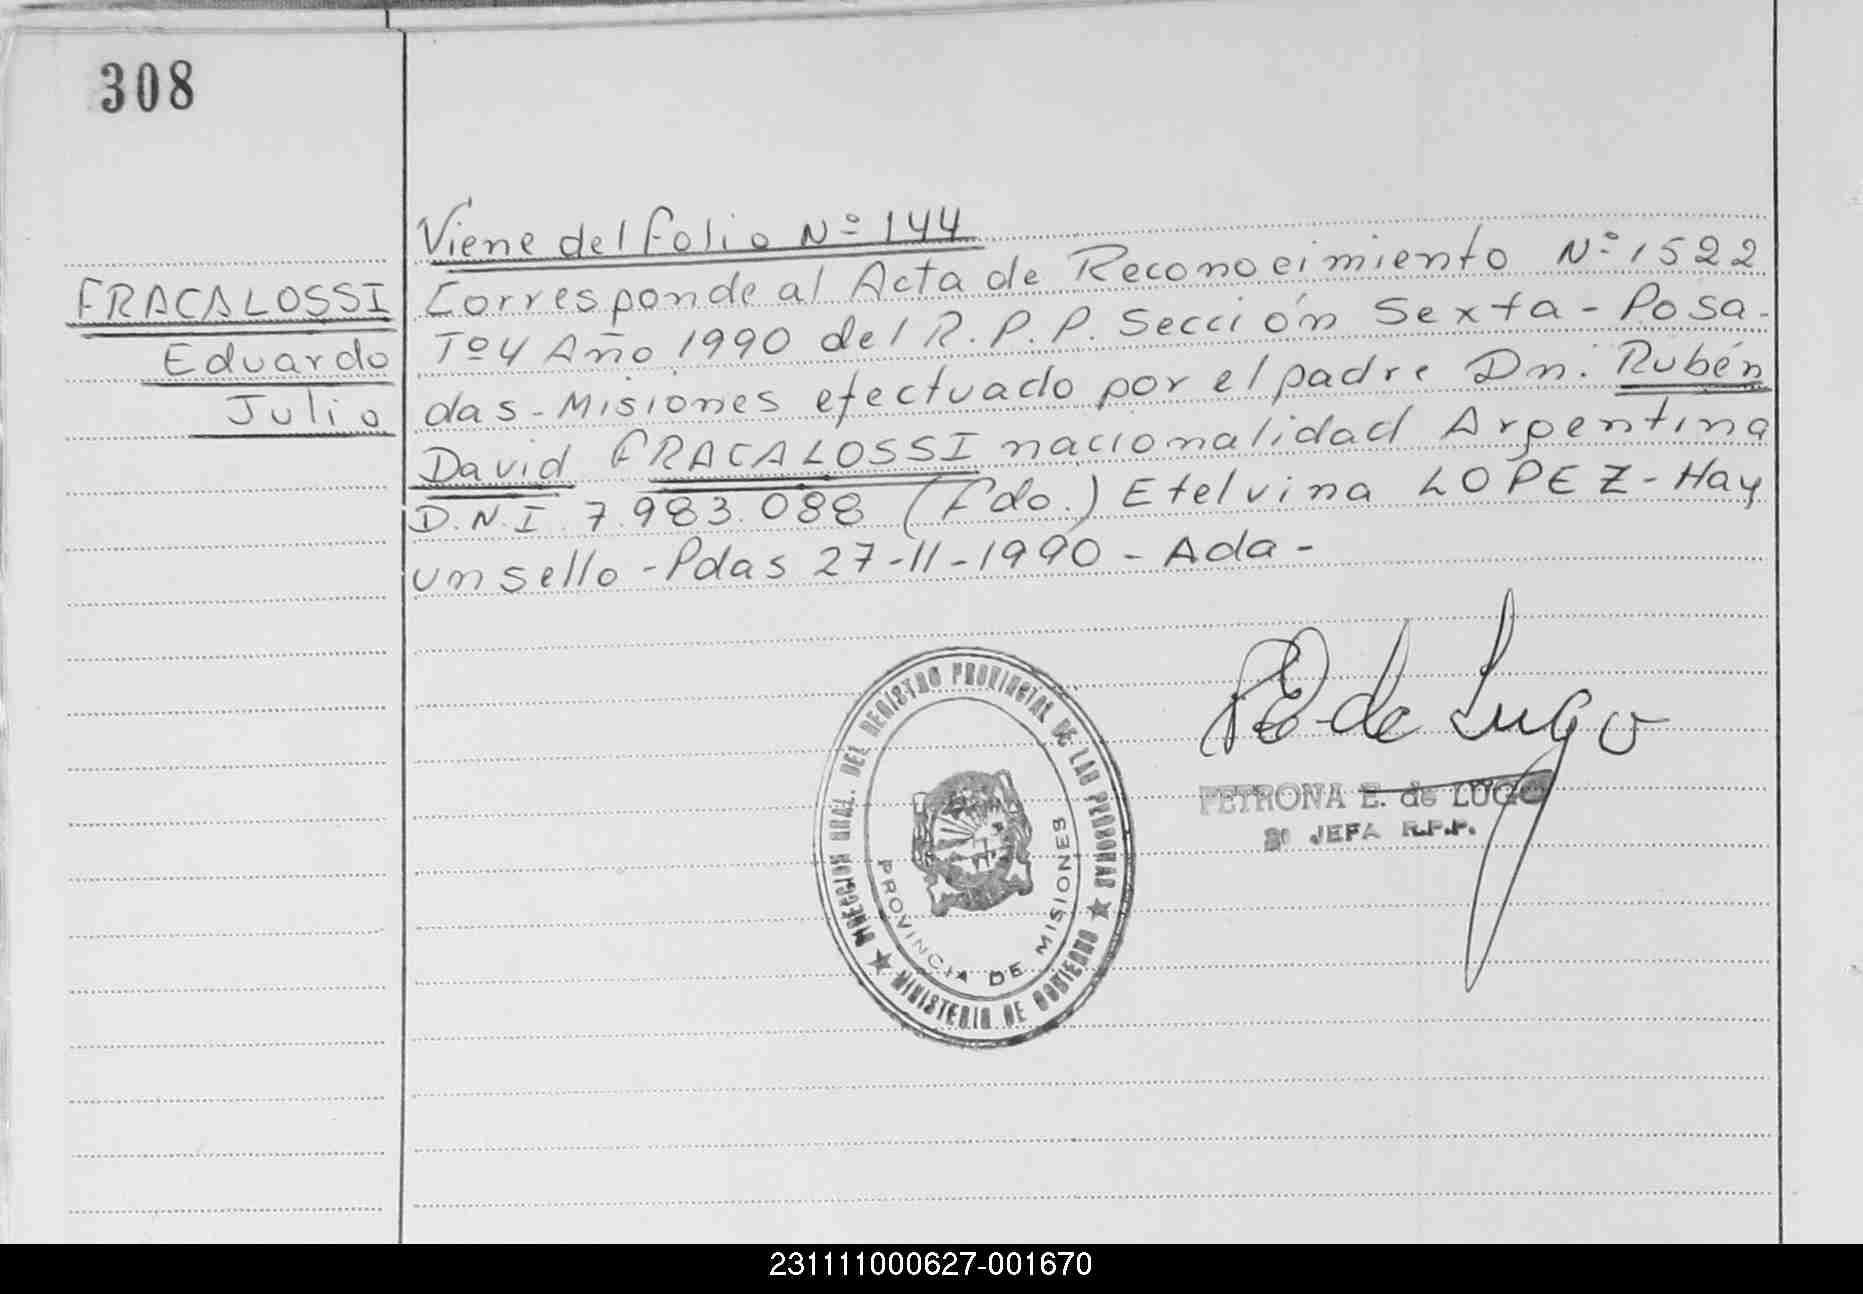 308
Viene del folio Nº 144
FRACALOSSI
Eduardo
Julio
Corresponde al Acta de Reconocimiento Nº 1522
Tº 4 Año 1990 del R.P.P. Sección Sexta - Posa-
das - Misiones efectuado por el padre Dn. Rubén
David FRACALOSSI nacionalidad Argentina
D.N.I 7.983.088 (Fdo.) Etelvina LOPEZ - Hay
un sello - Pdas 27-11-1990 - Ada -
DIRECCION GRAL. DEL REGISTRO PROVINCIAL DE LAS PERSONAS
MINISTERIO DE GOBIERNO
PROVINCIA DE MISIONES
PE de Lugo
PETRONA E. de LUGO
2º JEFA R.P.P.
231111000627-001670